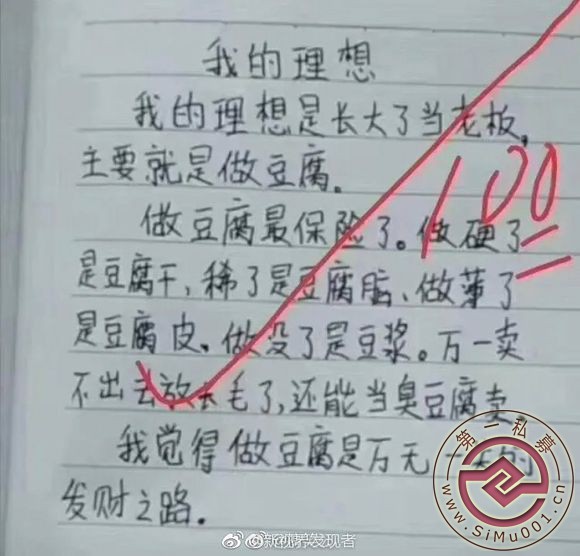 我的理想
我的理想是长大了当老板,
主要就是做豆腐。
100
做豆腐最保险了。做硬了
是豆腐干,稀了是豆腐脑、做薄了
是豆腐皮。做没了是豆浆。万一卖
不出去放长毛了,还能当臭豆腐卖。
我觉得做豆腐是万无一失的
发财之路。
第一私募
www.SiMu001.cn